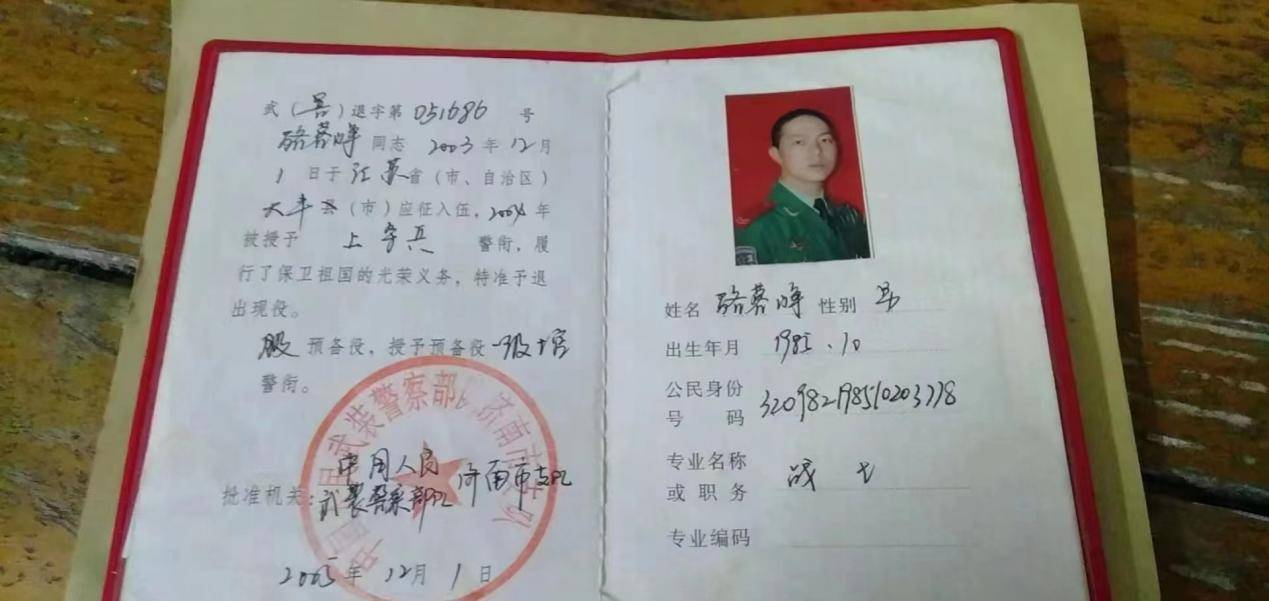 武（鲁）退字第 051686 号
骆蓉峰 同志 2003 年 12 月
1 日于 江苏 省（市、自治区）
大丰 县（市）应征入伍，2004 年
被授予 上等兵 警衔，履
行了保卫祖国的光荣义务，特准予退
出现役。
服 预备役，授予预备役 一级士官
警衔。
批准机关：中国人民武装警察部队济南市支队
2005 年 12 月 1 日
中国人民武装警察部队济南市支队
姓名 骆蓉峰 性别 男
出生年月 1985.10
公民身份
号 码 320982198510203778
专业名称
或 职 务 战士
专业编码